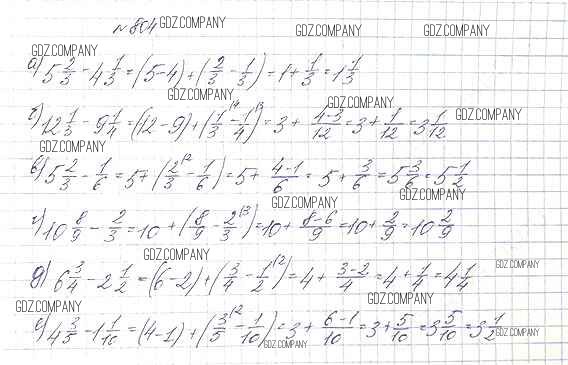 № 804 GDZ.COMPANY GDZ.COMPANY GDZ.COMPANY
GDZ.COMPANY
а) 5 2/3 - 4 1/3 = (5-4) + (2/3 - 1/3) = 1 + 1/3 = 1 1/3
GDZ.COMPANY GDZ.COMPANY
б) 12 1/3 - 9 1/4 = (12-9) + (1/3 \4 - 1/4 \3) = 3 + (4-3)/12 = 3 + 1/12 = 3 1/12 GDZ.COMPANY
GDZ.COMPANY
в) 5 2/3 - 1/6 = 5 + (2/3 \2 - 1/6) = 5 + (4-1)/6 = 5 + 3/6 = 5 3/6 = 5 1/2
GDZ.COMPANY GDZ.COMPANY
г) 10 8/9 - 2/3 = 10 + (8/9 - 2/3 \3) = 10 + (8-6)/9 = 10 + 2/9 = 10 2/9
GDZ.COMPANY GDZ.COMPANY
д) 6 3/4 - 2 1/2 = (6-2) + (3/4 - 1/2 \2) = 4 + (3-2)/4 = 4 + 1/4 = 4 1/4
GDZ.COMPANY GDZ.COMPANY
е) 4 3/5 - 1 1/10 = (4-1) + (3/5 \2 - 1/10) = 3 + (6-1)/10 = 3 + 5/10 = 3 5/10 = 3 1/2 GDZ.COMPANY
GDZ.COMPANY